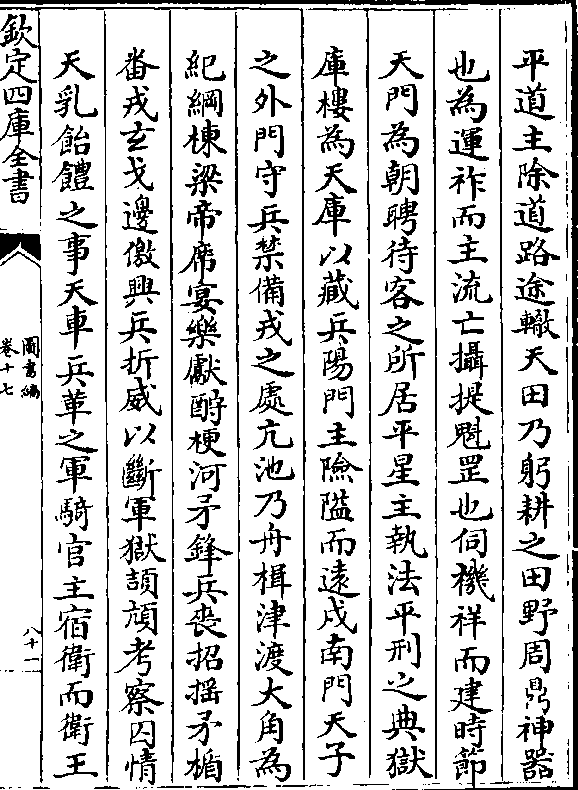 平道主除道路途轍天田乃躬耕之田野周鼎神器
也為運祚而主流亡攝提魁罡也伺機祥而建時節
天門為朝聘待客之所居平星主執法平刑之典獄
庫樓為天庫以藏兵陽門主險隘而遠戍南門天子
之外門守兵禁備戎之處亢池乃舟楫津渡大角為
紀綱棟梁帝席宴樂獻酧梗河矛鋒兵喪招揺矛楯
畨戎玄戈邊儌興兵折威以斷軍獄頡頏考察囚情
天乳飴醴之事天車兵革之軍騎官主宿衛而衛王
欽定四庫全書
圖書編
卷十七
八十一